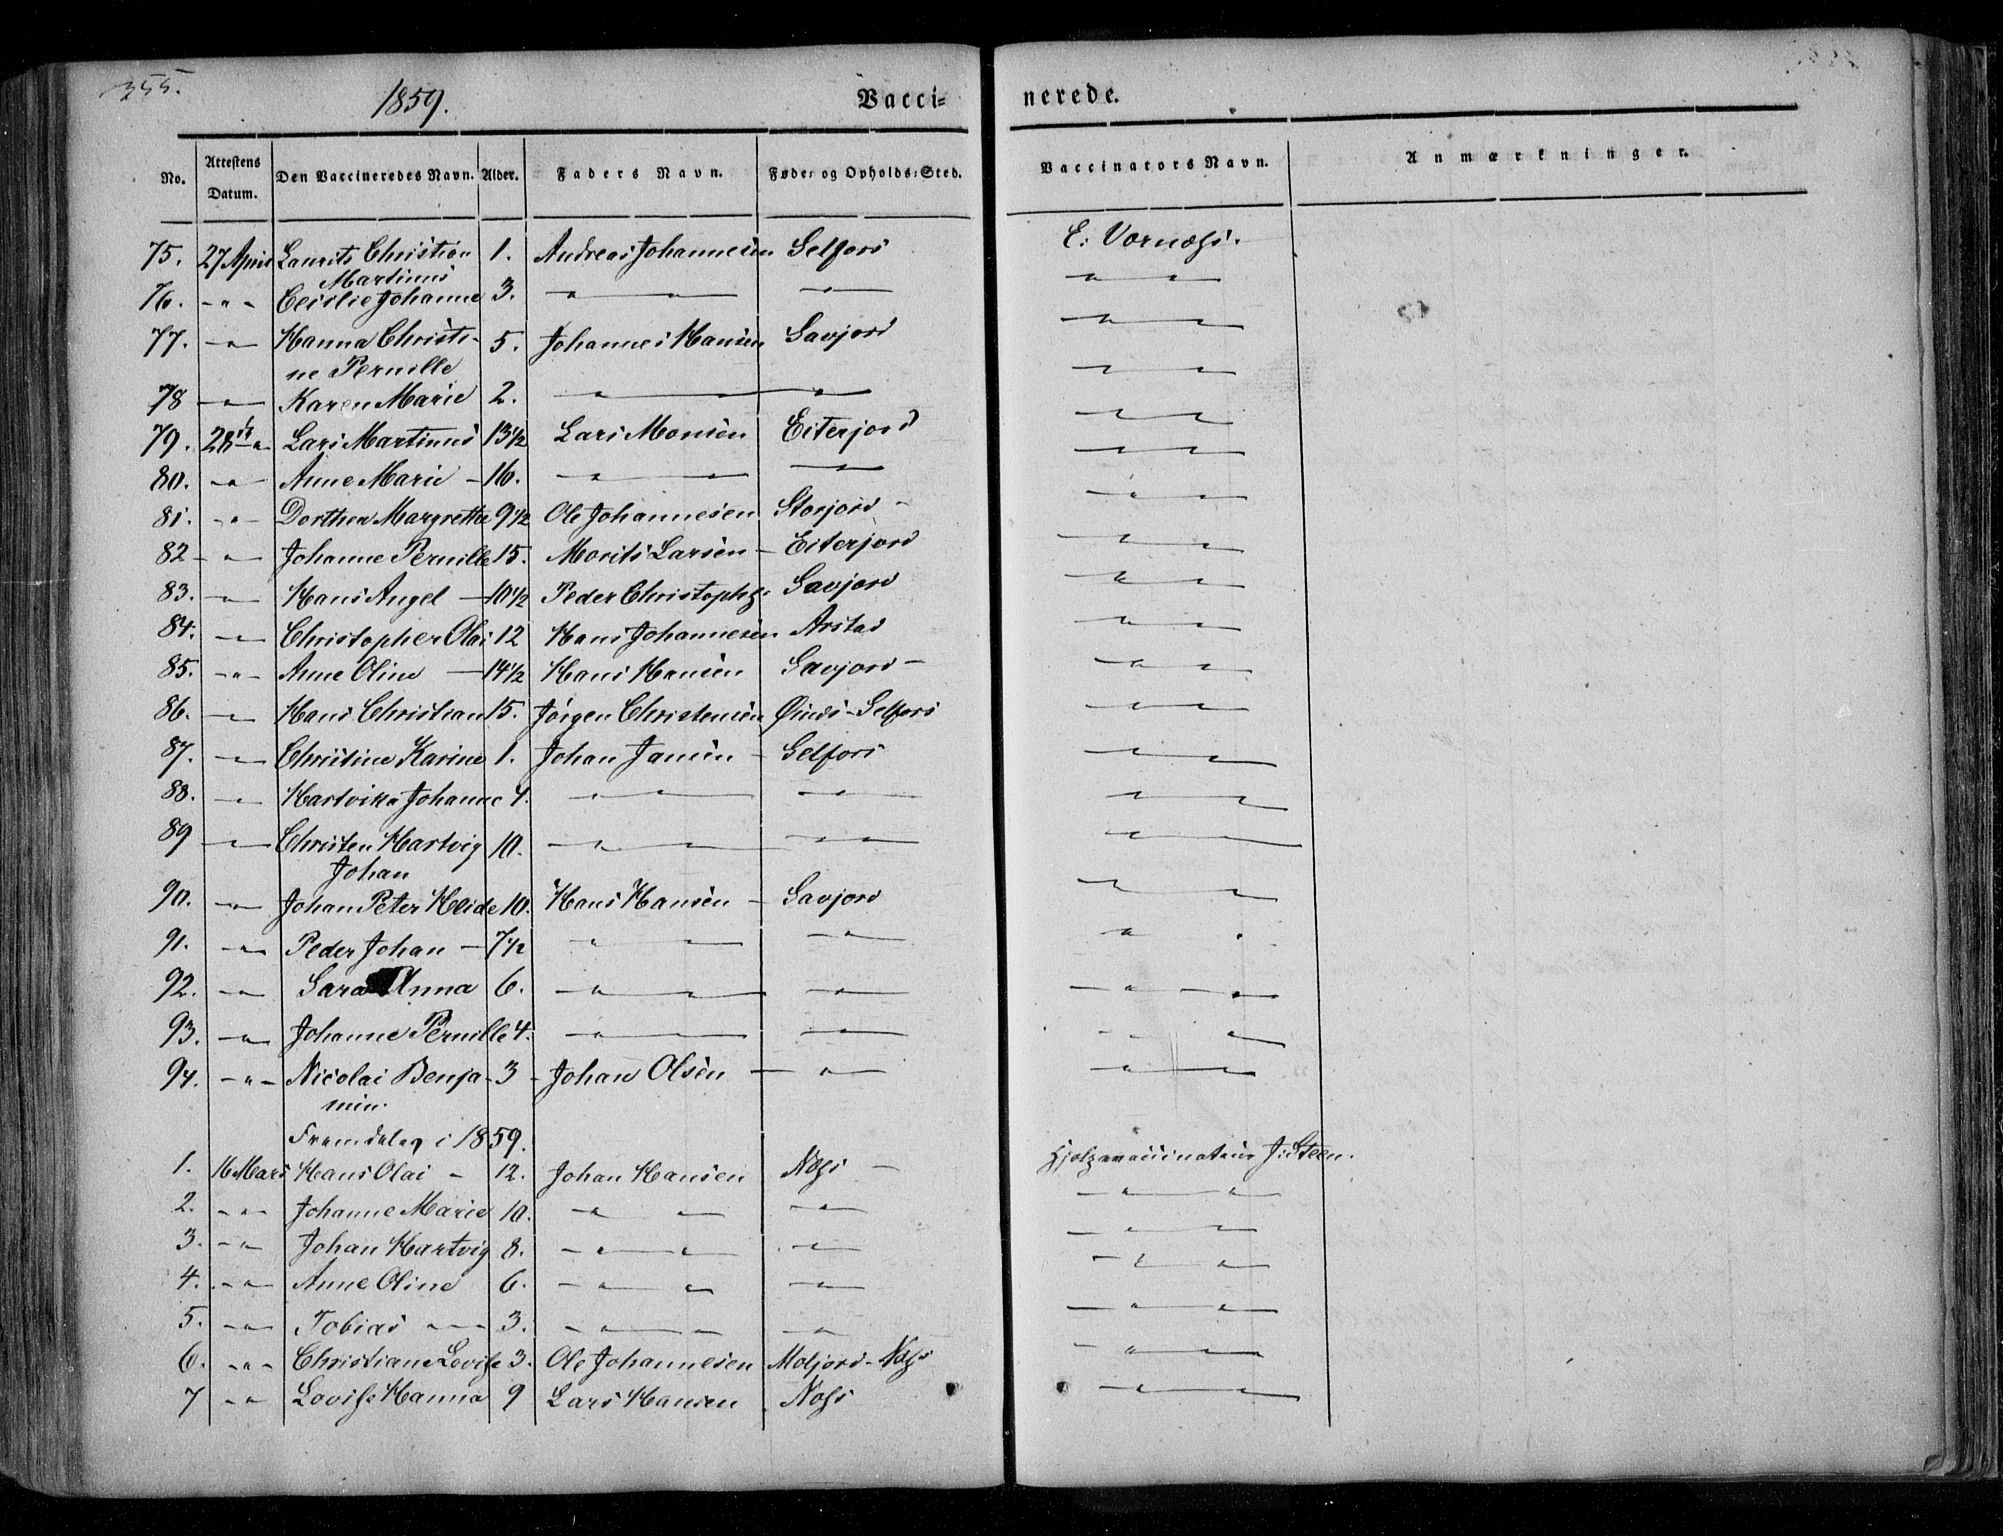 355.
1859.
Vacci- nerede.
No. Attestens Datum. Den Vaccineredes Navn. Alder. Faders Navn. Føde- og Opholds-Sted. Vaccinators Navn. Anmærkninger.
75. 27 April Laurits Christian 1. Andreas Johannesen Selfors E. Vornæss.
Martinus
76. - " - Cecilie Johanne 3. " " " " "
77. - " - Hanna Christi- 5. Johannes Hansen Savjord " "
ne Pernille
78 - " - Karen Marie 2. " " " " "
79. 28de " Lars Martinus 13 1/2 Lars Monsen Eiterjord " "
80. - " - Anne Marie - 16. " " " " "
81. - " - Dorthea Margrethe 9 1/2 Ole Johannesen Storjord - " "
82 - " - Johanne Pernille 15. Morits Larsen - Eiterjord " "
83. - " - Hans Angel - 10 1/2 Peder Christophs. Savjord " "
84. - " - Christopher Olai 12 Hans Johannesen Arstad " "
85. - " - Anne Oline - 14 1/2 Hans Hansen Savjord - " "
86. - " - Hans Christian 15. Jørgen Christensen Øinds-Selfors " "
87. - " - Christine Karine 1. Johan Jansen - Selfors " "
88. - " - Hartvikka Johanne 4. " " " " " "
89 - " - Christen Hartvig 10. " " " " " "
Johan
90. - " - Johan Peter Heide 10. Hans Hansen - Savjord " "
91. - " - Peder Johan - 7 1/2 " " " " "
92. - " - Sara Anna 6. " " " " "
93. - " - Johanne Pernille 4. " " " " "
94. - " - Nicolai Benja- 3 - Johan Olsen - " - " "
min.
Fremdeles i 1859.
1. 16 Mars Hans Olai - 12. Johan Hansen Næss - Hjelpevaccinateur J. Steen.
2. - " - Johanne Marie 10. " " " " "
3. - " Johan Hartvig 8. " " " " "
4. - " - Anne Oline 6. " " " " "
5. - " - Tobias - - - 3. " " " " "
6. - " - Christiane Lovise 3. Ole Johannesen Moljord-Næss " "
7 - " Lovise Hanna 9 Lars Hansen Næss " "